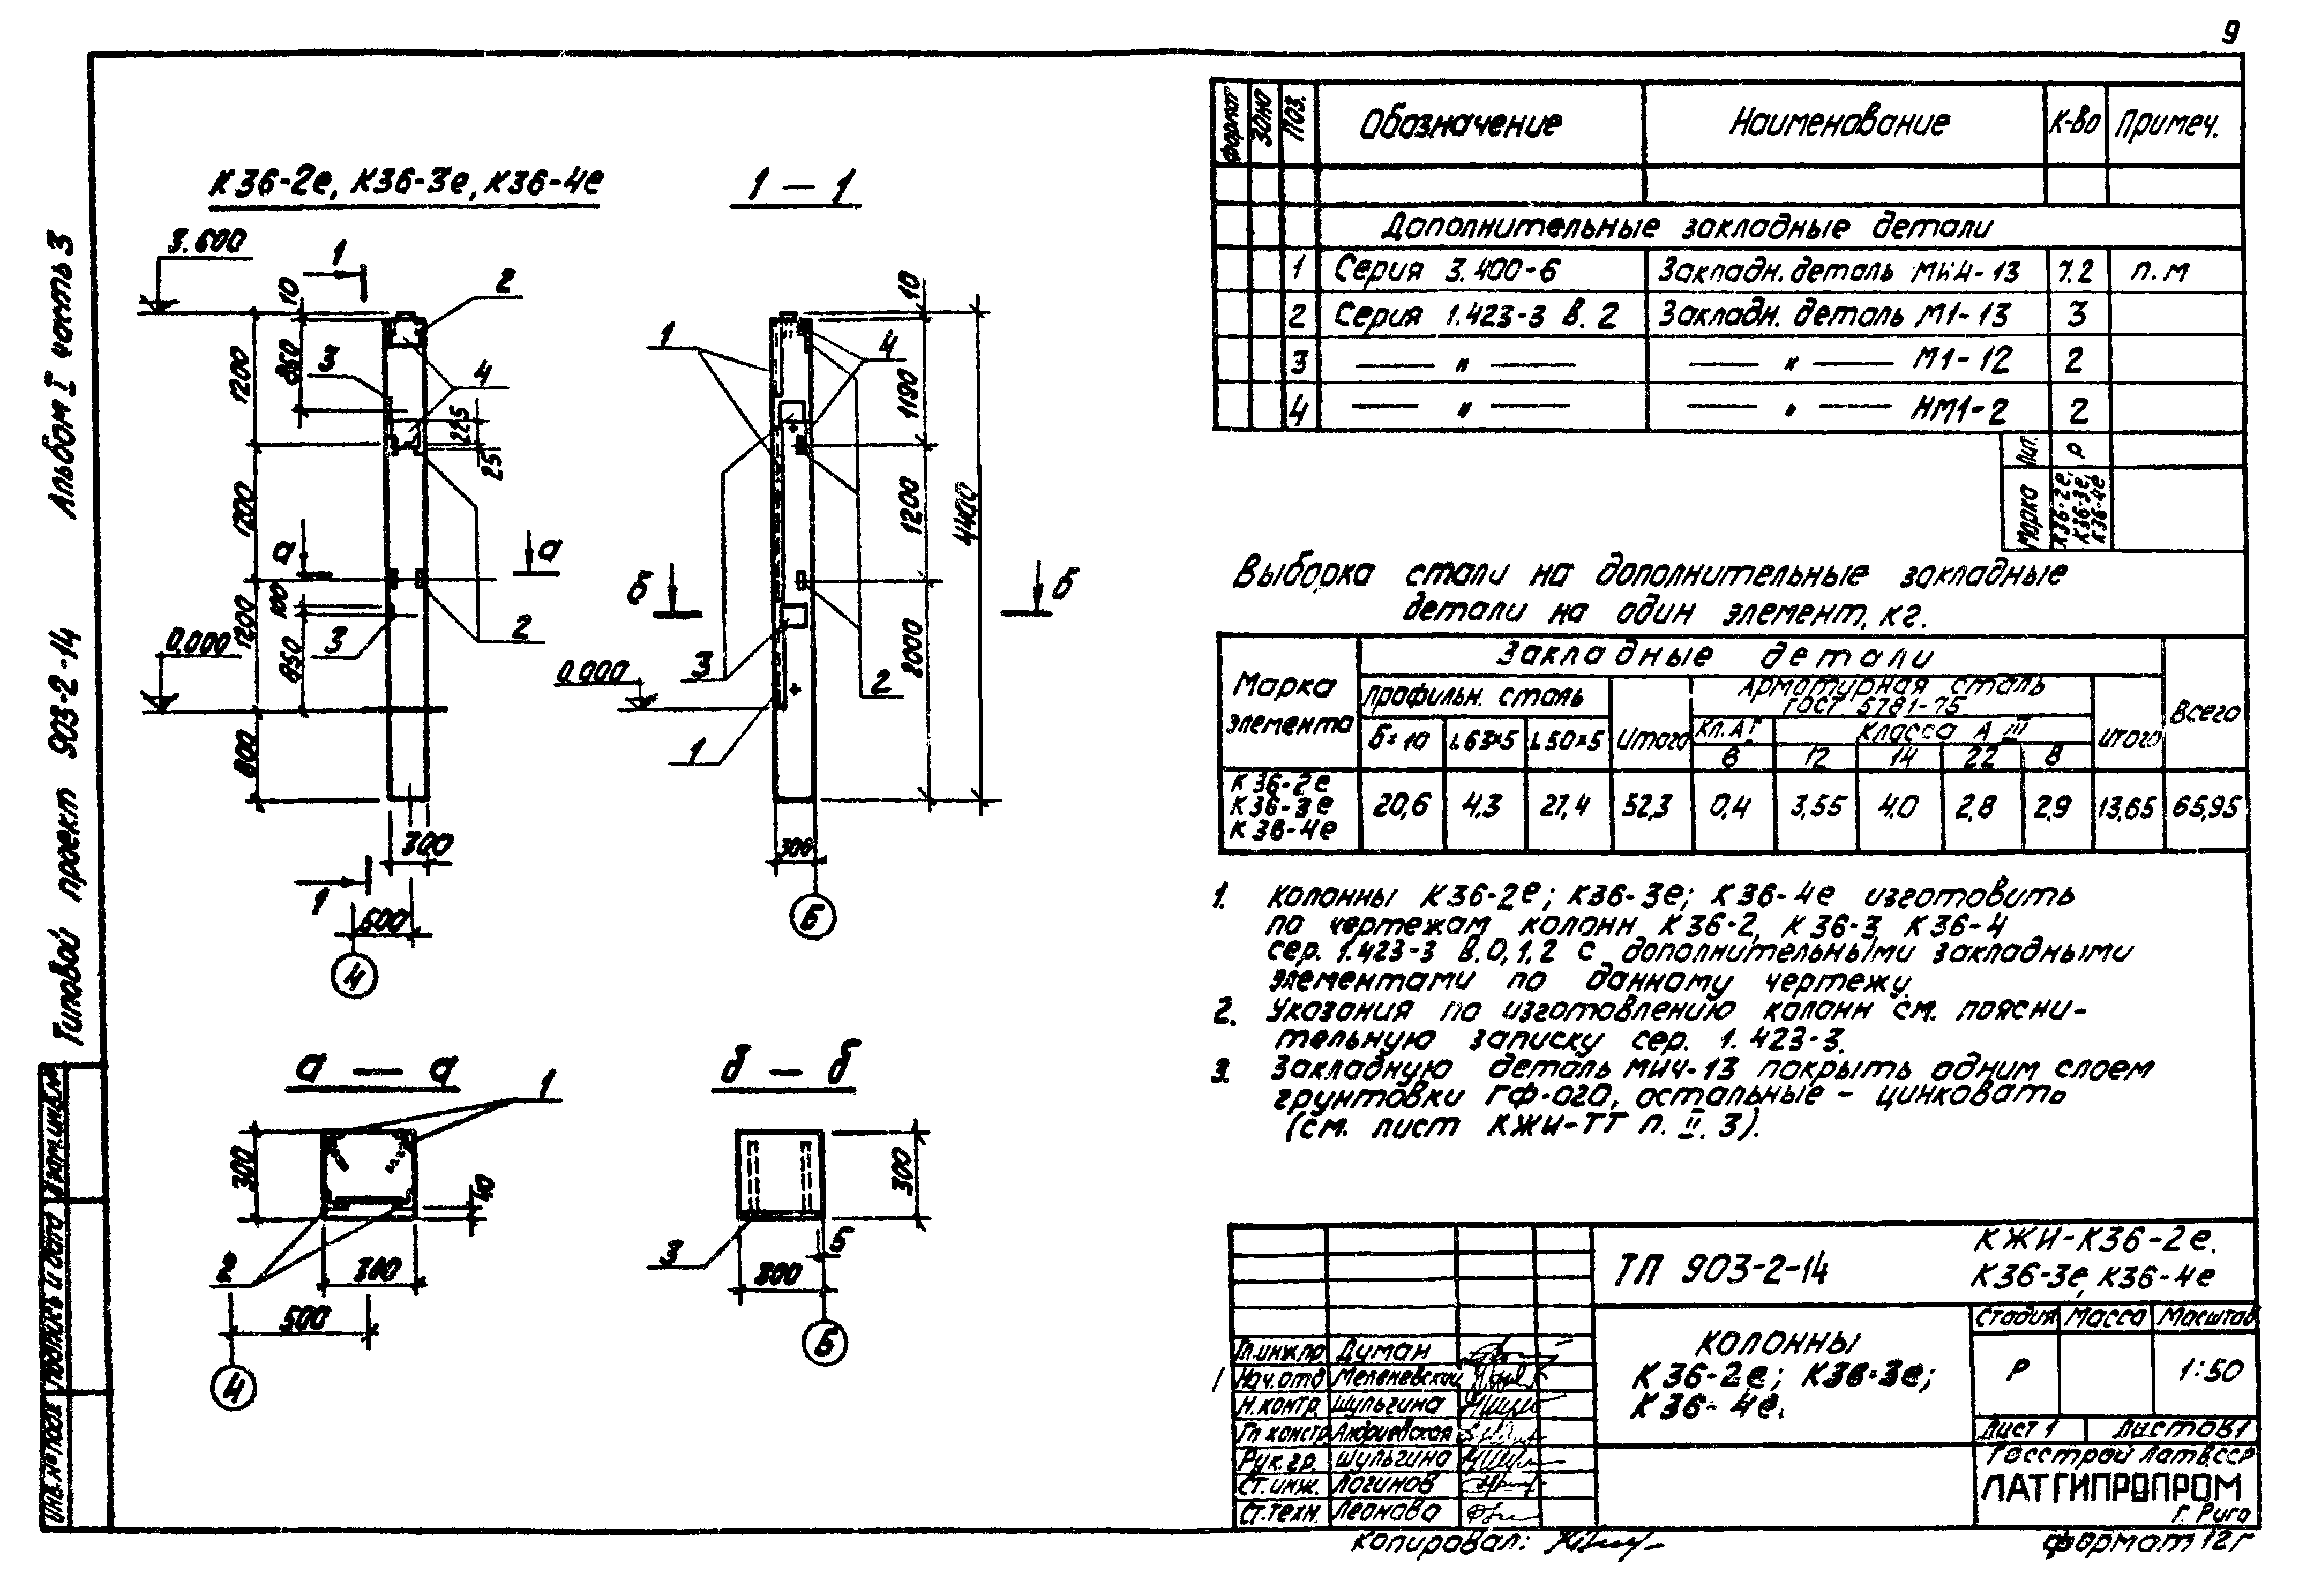 9
Альбом I часть 3
Типовой проект 903-2-14
К36-2е, К36-3е, К36-4е
1 – 1
3.600
1
10
2
1200
850
3
4
225
25
1200
а
а
100
1200
3
2
0.000
850
800
300
1
500
4
1
10
4
1190
1200
4400
б
б
3
0.000
2
2000
1
300
Б
а – а
1
300
40
2
300
500
4
б – б
3
300
5
300
Б
Формат
Зона
Поз.
Обозначение
Наименование
К-во
Примеч.
Дополнительные закладные детали
1 Серия 3.400-6 Закладн. деталь МН4-13 7.2 п.м
2 Серия 1.423-3 в. 2 Закладн. деталь М1-13 3
3 — " — — " — М1-12 2
4 — " — — " — НМ1-2 2
Лит. Р
Марка К36-2е, К36-3е, К36-4е
Выборка стали на дополнительные закладные
детали на один элемент, кг.
Марка элемента
Закладные детали
Всего
Профильн. сталь
Итого
Арматурная сталь
ГОСТ 5781-75
Итого
δ=10 L63×5 L50×5
Кл. А I
Класса А III
12 14 22 8
К36-2е
К36-3е
К36-4е
20,6 4.3 27,4 52,3 0,4 3,55 4.0 2,8 2,9 13,65 65,95
1. Колонны К36-2е; К36-3е; К36-4е изготовить
по чертежам колонн К36-2, К36-3, К36-4
сер. 1.423-3 в.0,1,2 с дополнительными закладными
элементами по данному чертежу.
2. Указания по изготовлению колонн см. поясни-
тельную записку сер. 1.423-3.
3. Закладную деталь МН4-13 покрыть одним слоем
грунтовки ГФ-020, остальные – цинковать
(см. лист КЖИ-ТТ п. II. 3).
ТП 903-2-14
КЖИ-К36-2е.
К36-3е, К36-4е
Колонны
К36-2е; К36-3е;
К36-4е.
Стадия Масса Масштаб
Р 1:50
Лист 1 Листов 1
Госстрой Латв.ССР
ЛАТГИПРОПРОМ
г. Рига
Гл.инж.пр. Думан
Нач. отд Меленевский
Н.контр. Шульгина
Гл. констр. Андриевская
Рук. гр. Шульгина
Ст. инж. Логинов
Ст. техн. Леонова
Копировал:
Формат 12г
Взам.инв.№
Подпись и дата
Инв.№ подл.